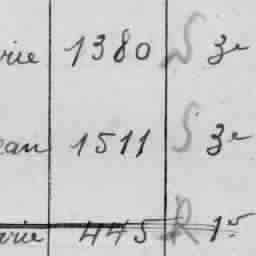 rie 1380 S 3e
ean 1511 S 3e
rie 445 R 1r